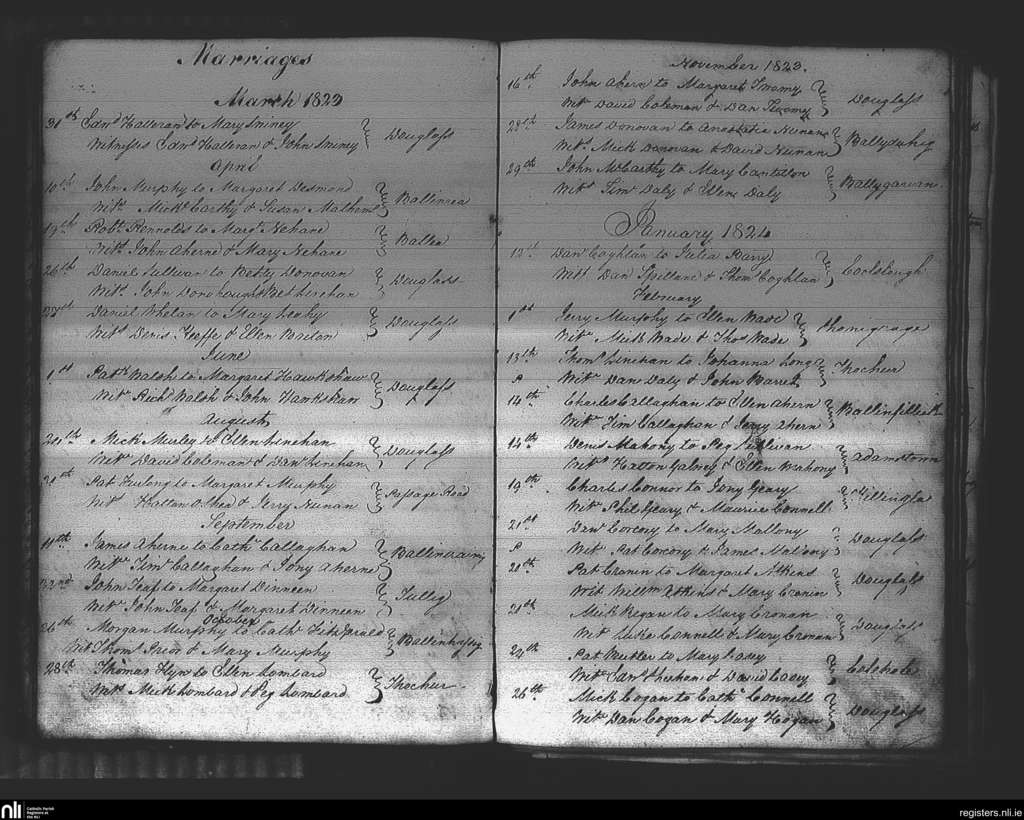 Marriages
March 1823
31st Edmd Halloran to Mary Sminey
Witnesses Edmd Halloran & John Sminey } Douglass
April
10th John Murphy to Margaret Desmond
Wits Mick Carthy & Susan Mathews } Ballinrea
19th Robt Rennolds to Margt Nehane
Wits John Aherne & Mary Nehane } Ballea
26th Daniel Sullivan to Betty Donovan
Wits John Donohough & Bet Linehan } Douglass
27th Daniel Whelan to Mary Leahy
Wits Denis Keeffe & Ellen Breslon } Douglass
June
1st Patk Walsh to Margaret Hawkshaw
Wits Richd Walsh & John Hawkshaw } Douglass
August
20th Mick Murley to Ellen Linehan
Wits David Coleman & Danl Linehan } Douglass
31st Pat Furlong to Margaret Murphy
Wits O Shea & Jerry Nunan } Passage Road
September
11th James Aherne to Cathe Callaghan
Wits Timy Callaghan & Tony Aherne }
22nd John Leap to Margaret Dinneen
Wits John Leap & Margaret Dinneen } Tullig
October
26th Morgan Murphy to Cathe Fitzgerald
Wits Thoms Prior & Mary Murphy } Ballinhassig
28th Thomas Flyn to Ellen Lombard
Wits Mick Lombard & Peg Lombard } Thocheur
November 1823.
16th John Ahern to Margaret Twomy
Wits David Coleman & Dan Twomy } Douglass
23rd James Donovan to Anastatia Nunan
Wits Mick Donovan & David Nunan } Ballyduhig
29th John McCarthy to Mary Cantillon
Wits Timy Daly & Ellen Daly } Ballygarvan
January 1824
Dan Coghlan to Julia Barry
Wits Dan Spillane & Thoms Coghlan } Coolslough
February
1st Jerry Murphy to Ellen Wade
Wits Mick Wade & Thos Wade } Shanigrage
13th Thoms Linehan to Johanna Long
P Wits Dan Daly & John Barret } Thocheur
14th Charles Callaghan to Ellen Ahern
Wits Tim Callaghan & Jerry Ahern }
14th Denis Mahony to Peg Sullivan
Wits Hatton Galwey & Ellen Mahony } Adamstown
19th Charles Connor to Tony Geary
Wits Phil Geary & Maurice Connell } Killingla
21st Danl Corcory to Mary Mallony
P Wits Pat Corcory & James Malony } Douglass
20th Pat Cronin to Margaret Atkins
Wits Willm Atkins & Mary Cronin } Douglass
Mick Regan to Mary Cronan
Wits Luke Connell & Mary Cronan } Douglass
Pat Butler to Mary Cody
Wits Edmd Linehan & David Cody } Colehole
26th Mick Cogan to Cathe Connell
Wits Dan Cogan & Mary Hogan } Douglass
nli Catholic Parish
Registers at
the NLI
registers.nli.ie